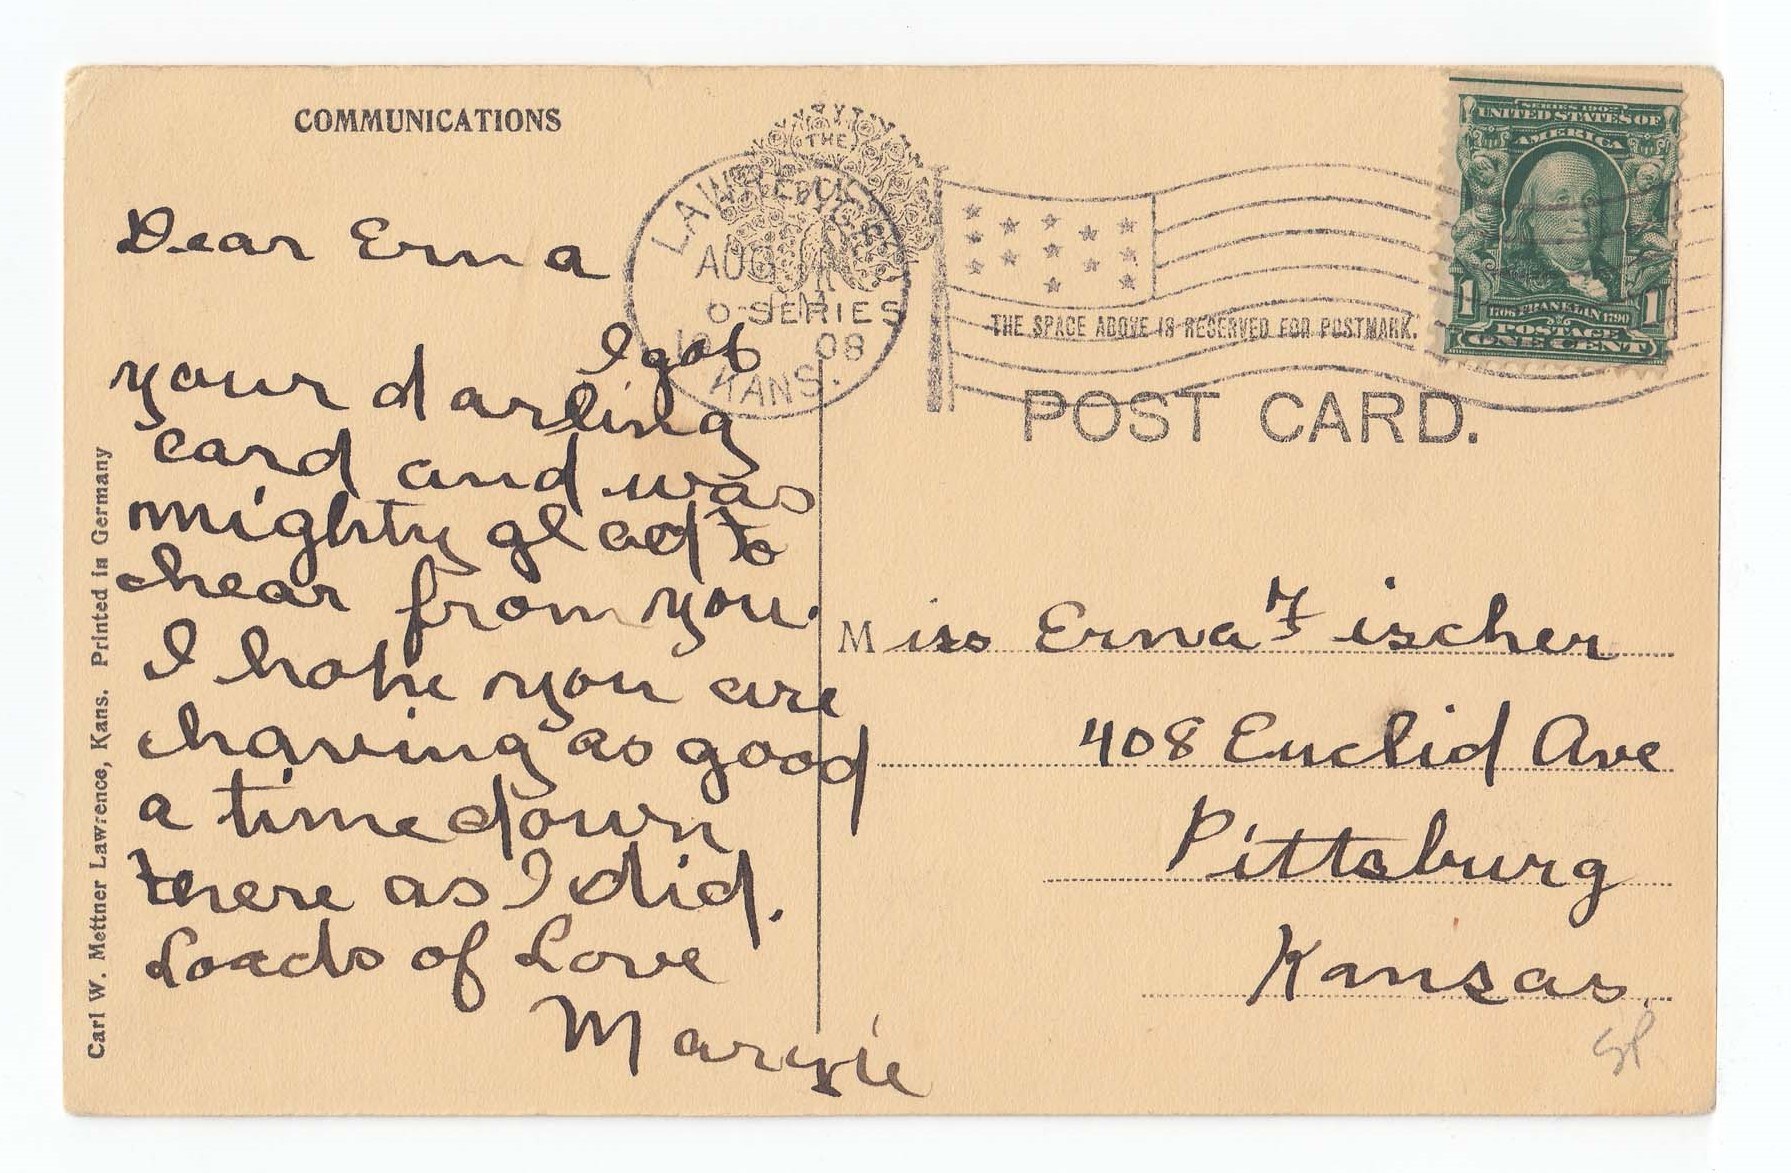 COMMUNICATIONS
Dear Erna
I got
your darling
card and was
mighty glad to
hear from you.
I hope you are
having as good
a time down
there as I did.
Loads of Love
Margie
Carl W. Mettner Lawrence, Kans. Printed in Germany
THE
O-SERIES
AUG
08
KANS.
THE SPACE ABOVE IS RESERVED FOR POSTMARK.
POST CARD.
SERIES 1902
UNITED STATES OF
AMERICA
1 1706 FRANKLIN 1790 1
POSTAGE
ONE CENT
Miss Erna Fischer
408 Euclid Ave
Pittsburg
Kansas.